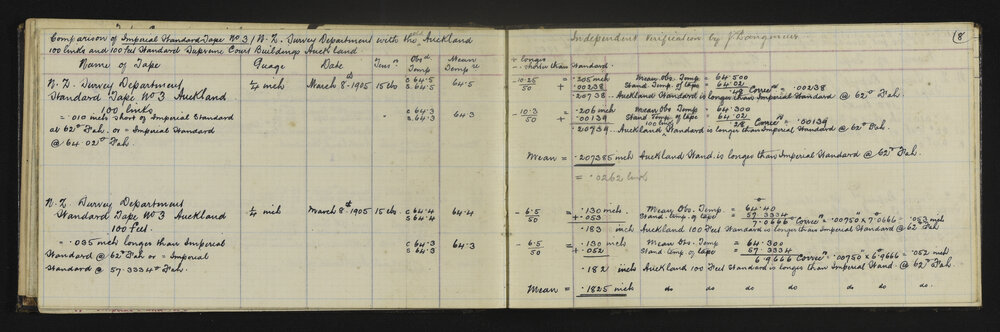 Comparison of Imperial Standard Tape No 3 / N. Z. Survey Department with the old Auckland
100 links and 100 Feet Standard Supreme Court Buildings Auckland.
Name of Tape Guage Date Tens'n Obsd Temp Mean Temp re
N. Z. Survey Department 1/4 inch March 8th 1905 15 lbs c 64.5 64.5
Standard Tape No 3 Auckland s 64.5
100 links " c 64.3 64.3
= .010 inch short of Imperial Standard s 64.3
at 62° Fah. or = Imperial Standard
@ 64.02° Fah.
N. Z. Survey Department
Standard Tape No 3 Auckland 1/4 inch March 8th 1905 15 lbs c 64.4 64.4
100 feet s 64.4
= .035 inch longer than Imperial c 64.3 64.3
Standard @ 62° Fah or = Imperial s 64.3
Standard @ 57.3334° Fah.
Independent Verification by 8
+ longer
- shorter than Standard.
- 10.25 / 50 = .205 inch Mean Obs. Temp = 64.500
+ .00238 Stand Temp. of tape = 64.02
.48 Correcn = .00238
.20738 .. Auckland Standard is longer than Imperial Standard @ 62° Fah.
- 10.3 / 50 = .206 inch Mean Obs Temp = 64.300
+ .00139 Stand Temp. of tape = 64.02
.28 Correcn = .00139
.20739 .. Auckland 100 links Standard is longer than Imperial Standard @ 62° Fah.
Mean = .207385 inch Auckland Stand. is longer than Imperial Standard @ 62° Fah.
= .0262 link
- 6.5 / 50 = .130 inch. Mean Obs. Temp. = 64.40
+ .053 Stand. temp. of tape = 57.3334
7.0666 Correcn = .00750 x 7.0666 = .053 inch
.183 inch Auckland 100 Feet Standard is longer than Imperial Standard @ 62° Fah.
- 6.5 / 50 = .130 inch Mean Obs Temp = 64.300
+ .052 Stand. temp. of tape = 57.3334
6.9666 Correcn = .00750 x 6.9666 = .052 inch
.182 inch Auckland 100 Feet Standard is longer than Imperial Stand. @ 62° Fah.
Mean = .1825 inch do do do do do do do.